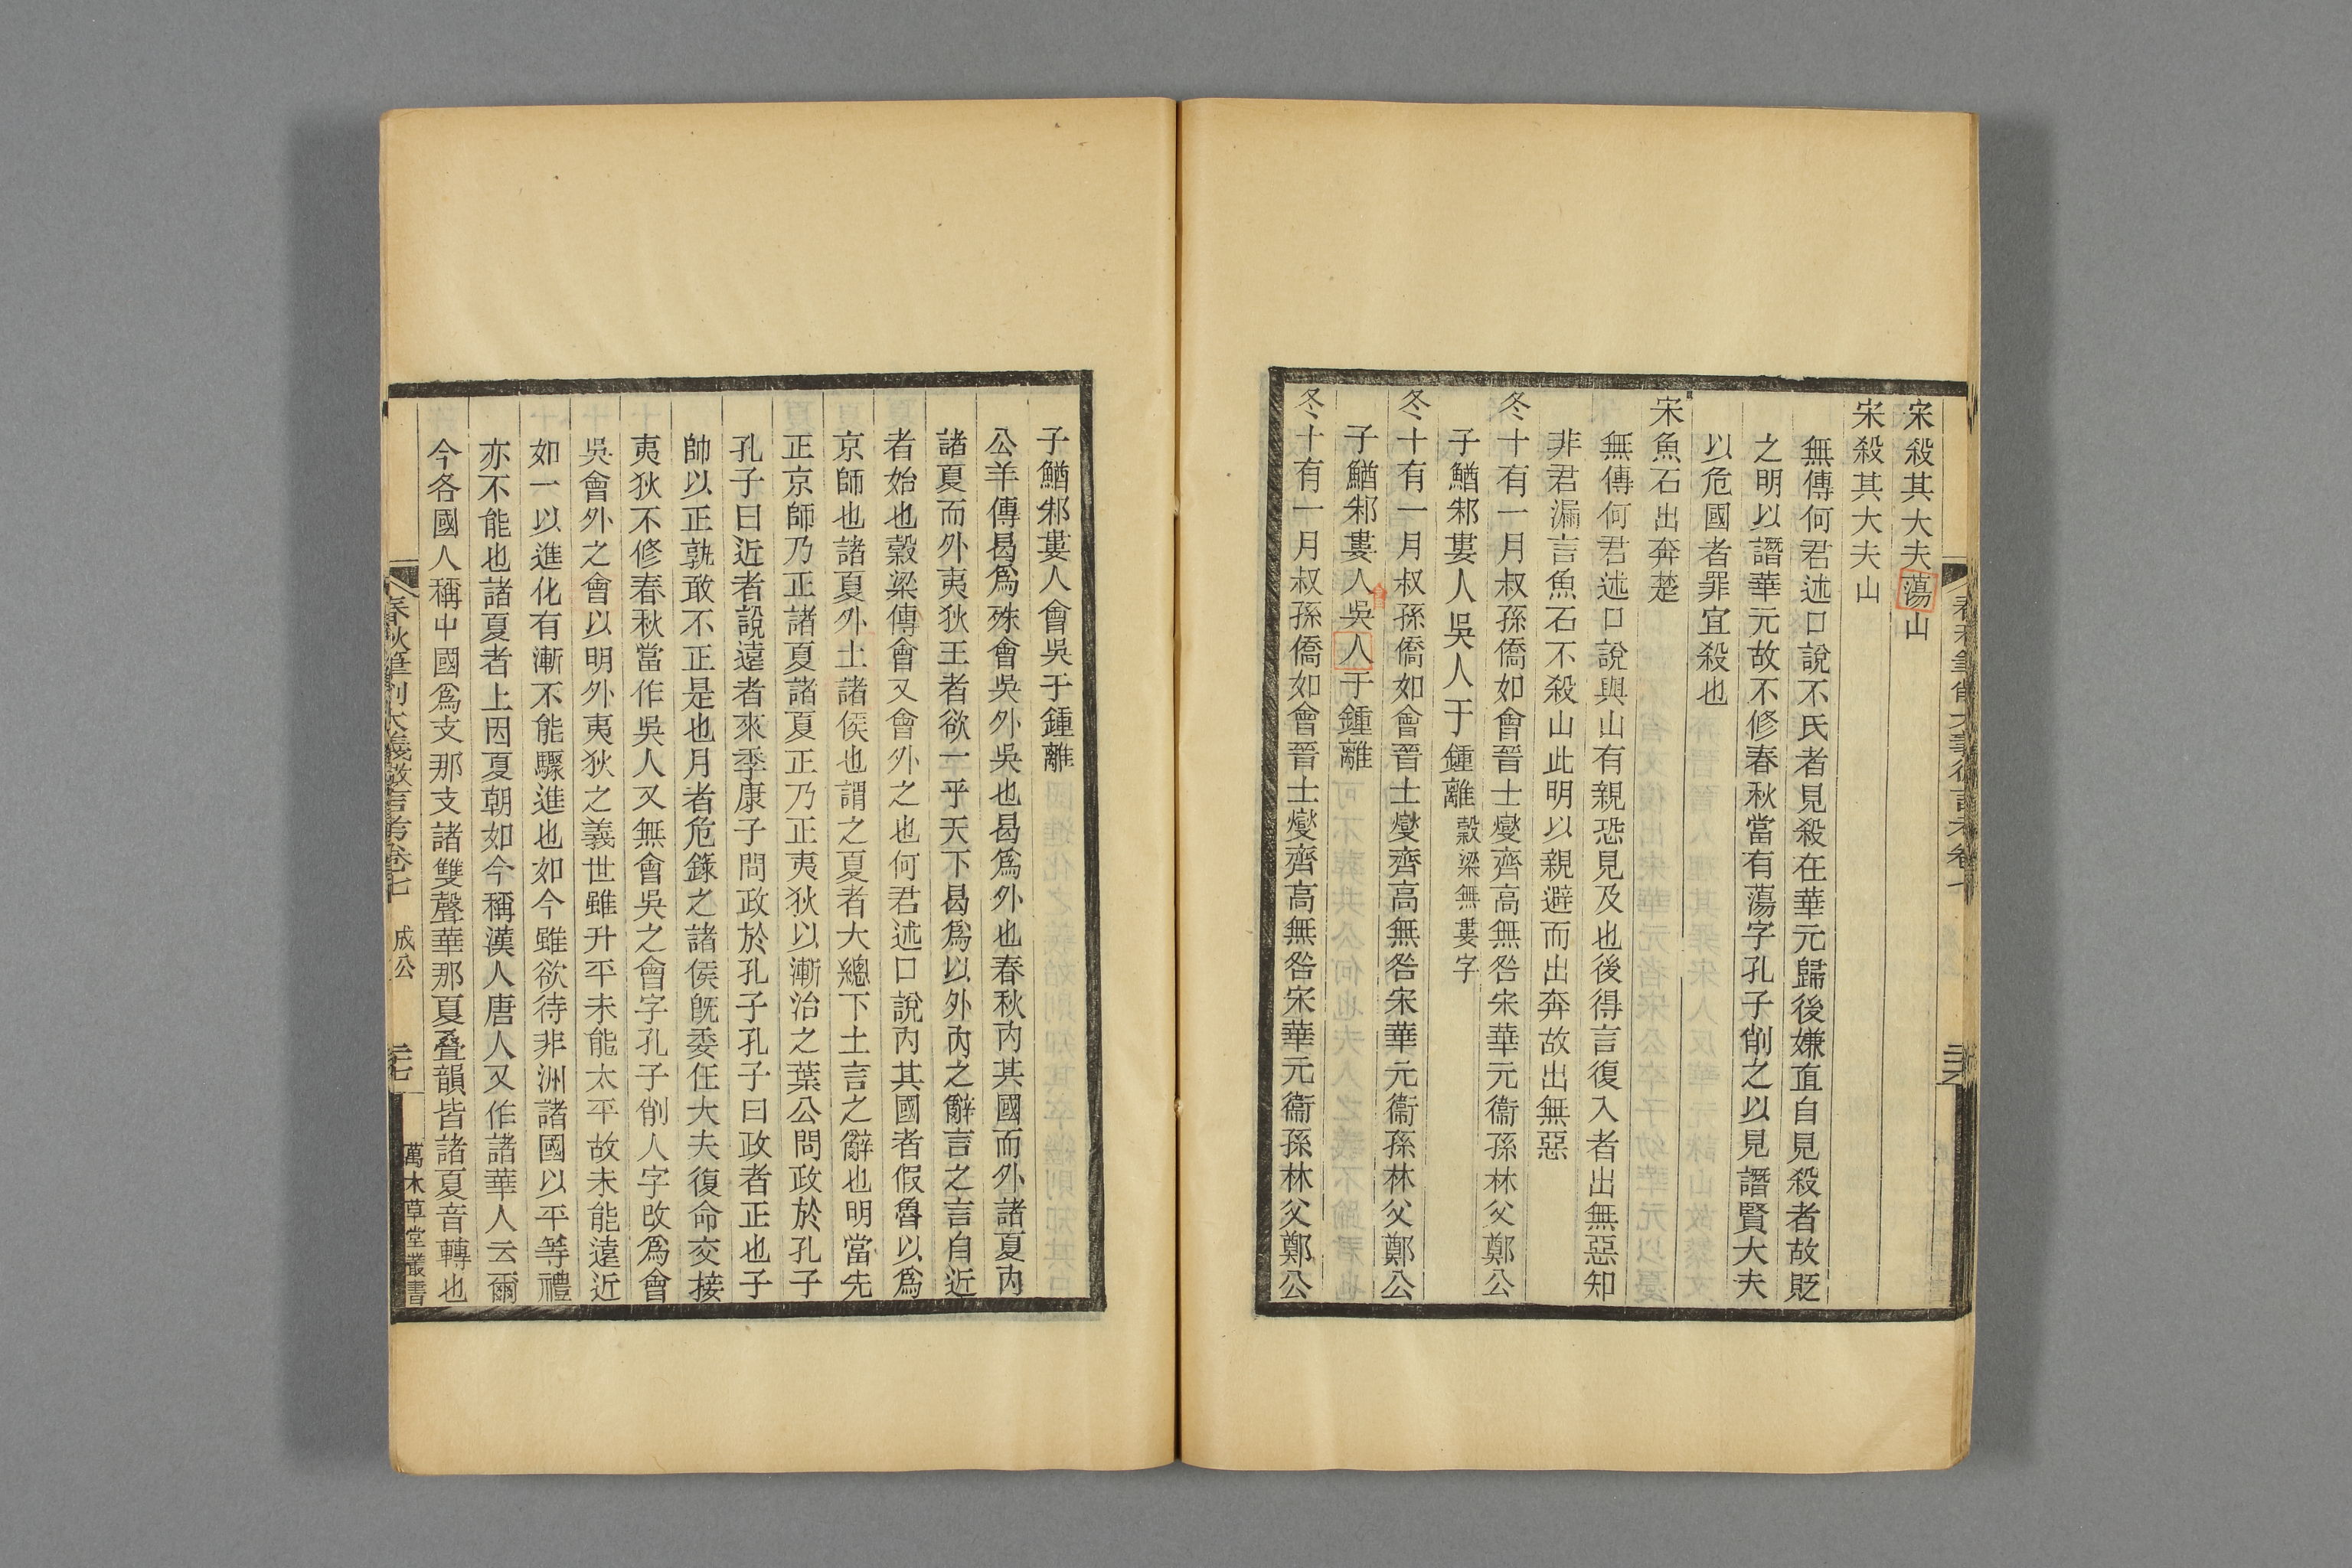 宋殺其大夫蕩山
宋殺其大夫山
無傳何君述口說不氏者見殺在華元歸後嫌直自見殺者故貶
之明以譖華元故不修春秋當有蕩字孔子削之以見譖賢大夫
以危國者罪宜殺也
宋魚石出奔楚
無傳何君述口說與山有親恐見及也後得言復入者出無惡知
非君漏言魚石不殺山此明以親避而出奔故出無惡
冬十有一月叔孫僑如會晉士燮齊高無咎宋華元衞孫林父鄭公
子鰌邾婁人吳人于鍾離穀梁無婁字
冬十有一月叔孫僑如會晉士燮齊高無咎宋華元衞孫林父鄭公
子鰌邾婁人會吳人于鍾離
冬十有一月叔孫僑如會晉士燮齊高無咎宋華元衞孫林父鄭公
子鰌邾婁人會吳于鍾離
公羊傳曷爲殊會吳外吳也曷爲外也春秋內其國而外諸夏內
諸夏而外夷狄王者欲一乎天下曷爲以外內之辭言之言自近
者始也穀梁傳會又會外之也何君述口說內其國者假魯以爲
京師也諸夏外土諸侯也謂之夏者大總下土言之辭也明當先
正京師乃正諸夏諸夏正乃正夷狄以漸治之葉公問政於孔子
孔子曰近者說遠者來季康子問政於孔子孔子曰政者正也子
帥以正孰敢不正是也月者危錄之諸侯旣委任大夫復命交接
夷狄不修春秋當作吳人又無會吳之會字孔子削人字改爲會
吳會外之會以明外夷狄之義世雖升平未能太平故未能遠近
如一以進化有漸不能驟進也如今雖欲待非洲諸國以平等禮
亦不能也諸夏者上因夏朝如今稱漢人唐人又作諸華人云爾
今各國人稱中國爲支那支諸雙聲華那夏疊韻皆諸夏音轉也
春秋筆削大義微言考卷七 成公 二十七 萬木草堂叢書